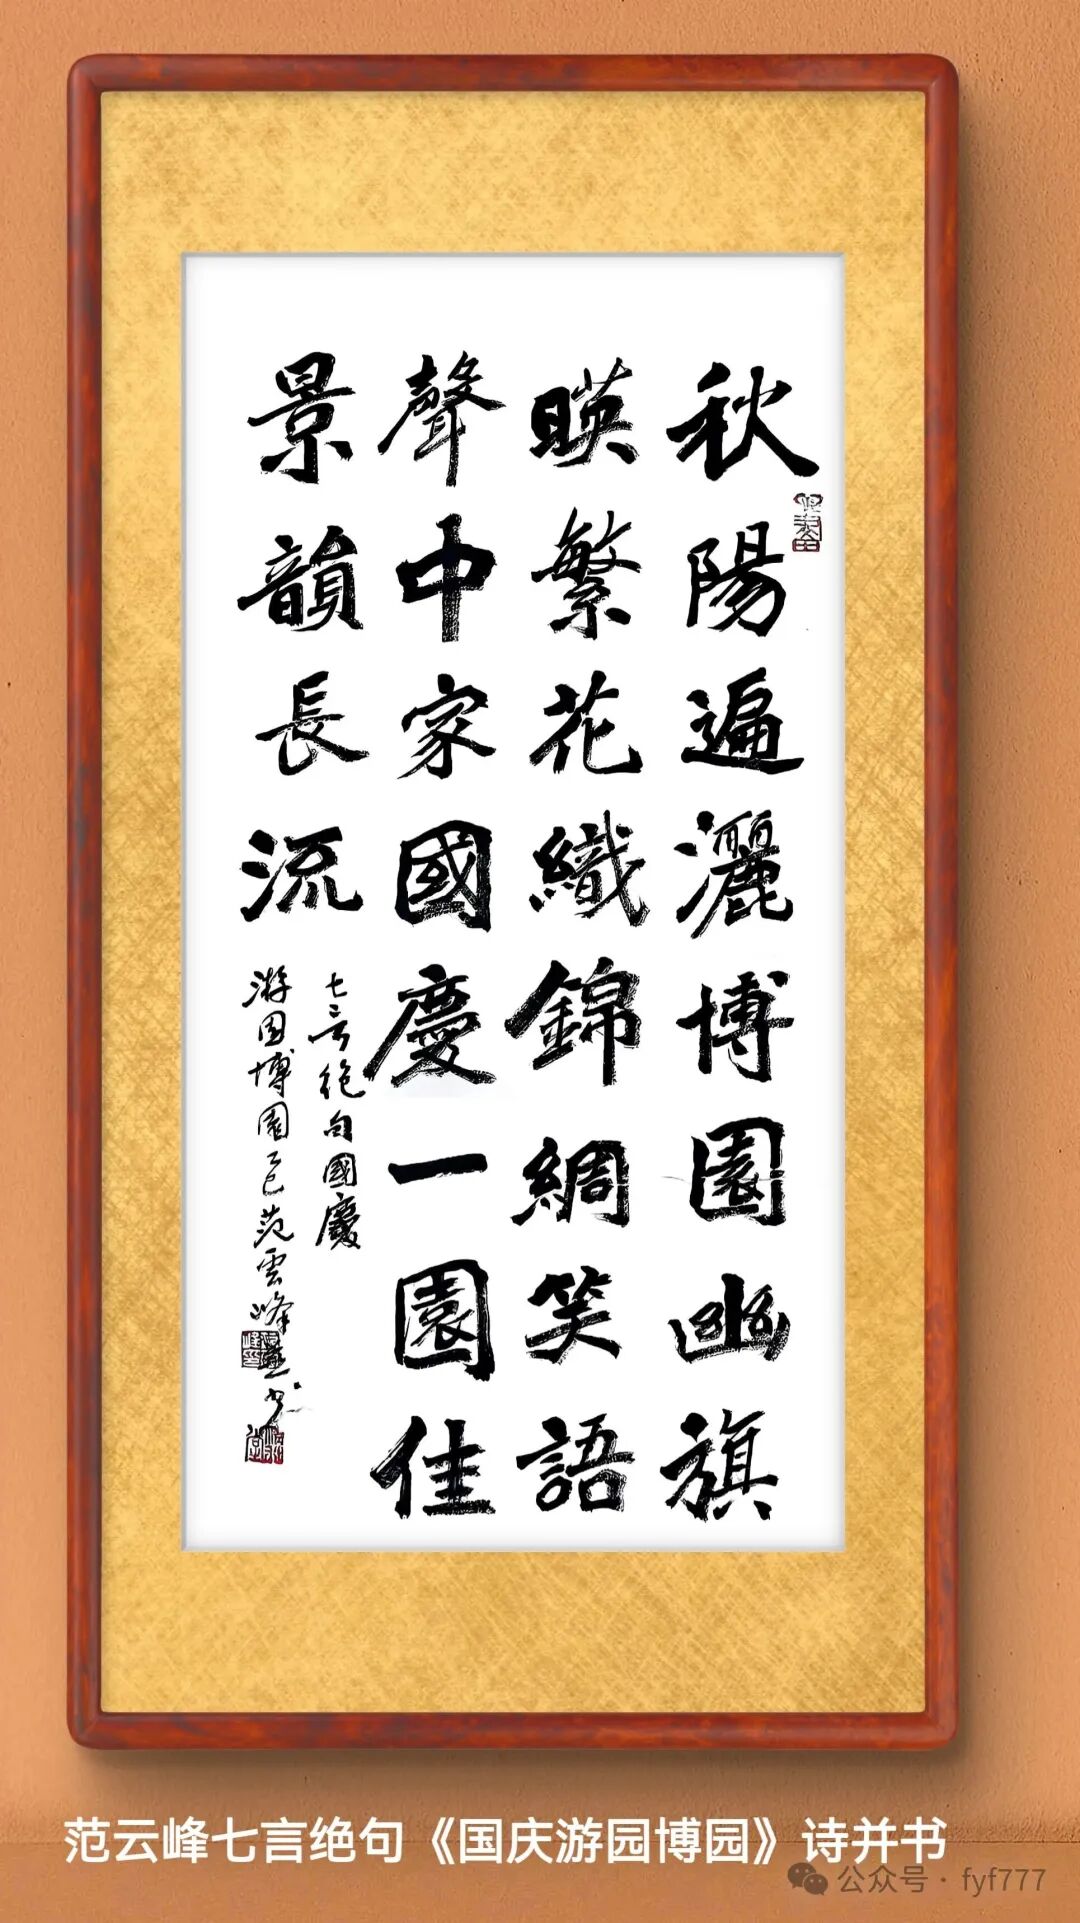 秋陽遍灑博園幽旗
暎繁花織錦綢笑語
聲中家國慶一園佳
景韻長流
七言绝句國慶
游园博園乙巳范雲峰
范云峰七言绝句《国庆游园博园》诗并书
公众号·fyf777